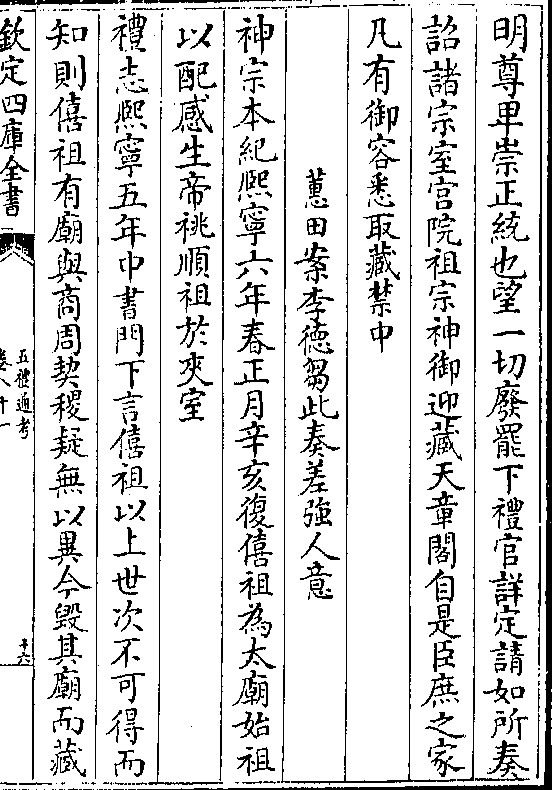 明尊卑崇正統也望一切廢罷下禮官詳定請如所奏
詔諸宗室宫院祖宗神御迎藏天章閣自是臣庶之家
凡有御容悉取藏禁中
蕙田案李德芻此奏差強人意
神宗本紀熙寧六年春正月辛亥復僖祖為太廟始祖
以配感生帝祧順祖於夾室
禮志熙寧五年中書門下言僖祖以上世次不可得而
知則僖祖有廟與商周契稷疑無以異今毁其廟而藏
欽定四庫全書
五禮通考
卷八十一
十六